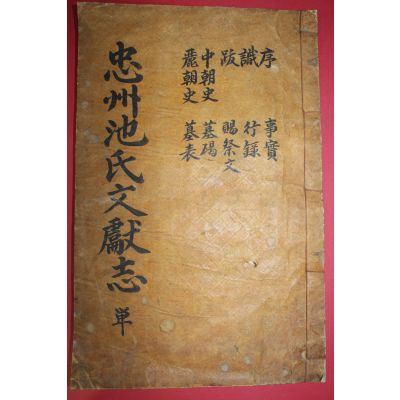 序 事實
識 行錄
跋 賜祭文
中朝史 墓碣
麗朝史 墓表
忠州池氏文獻志 単